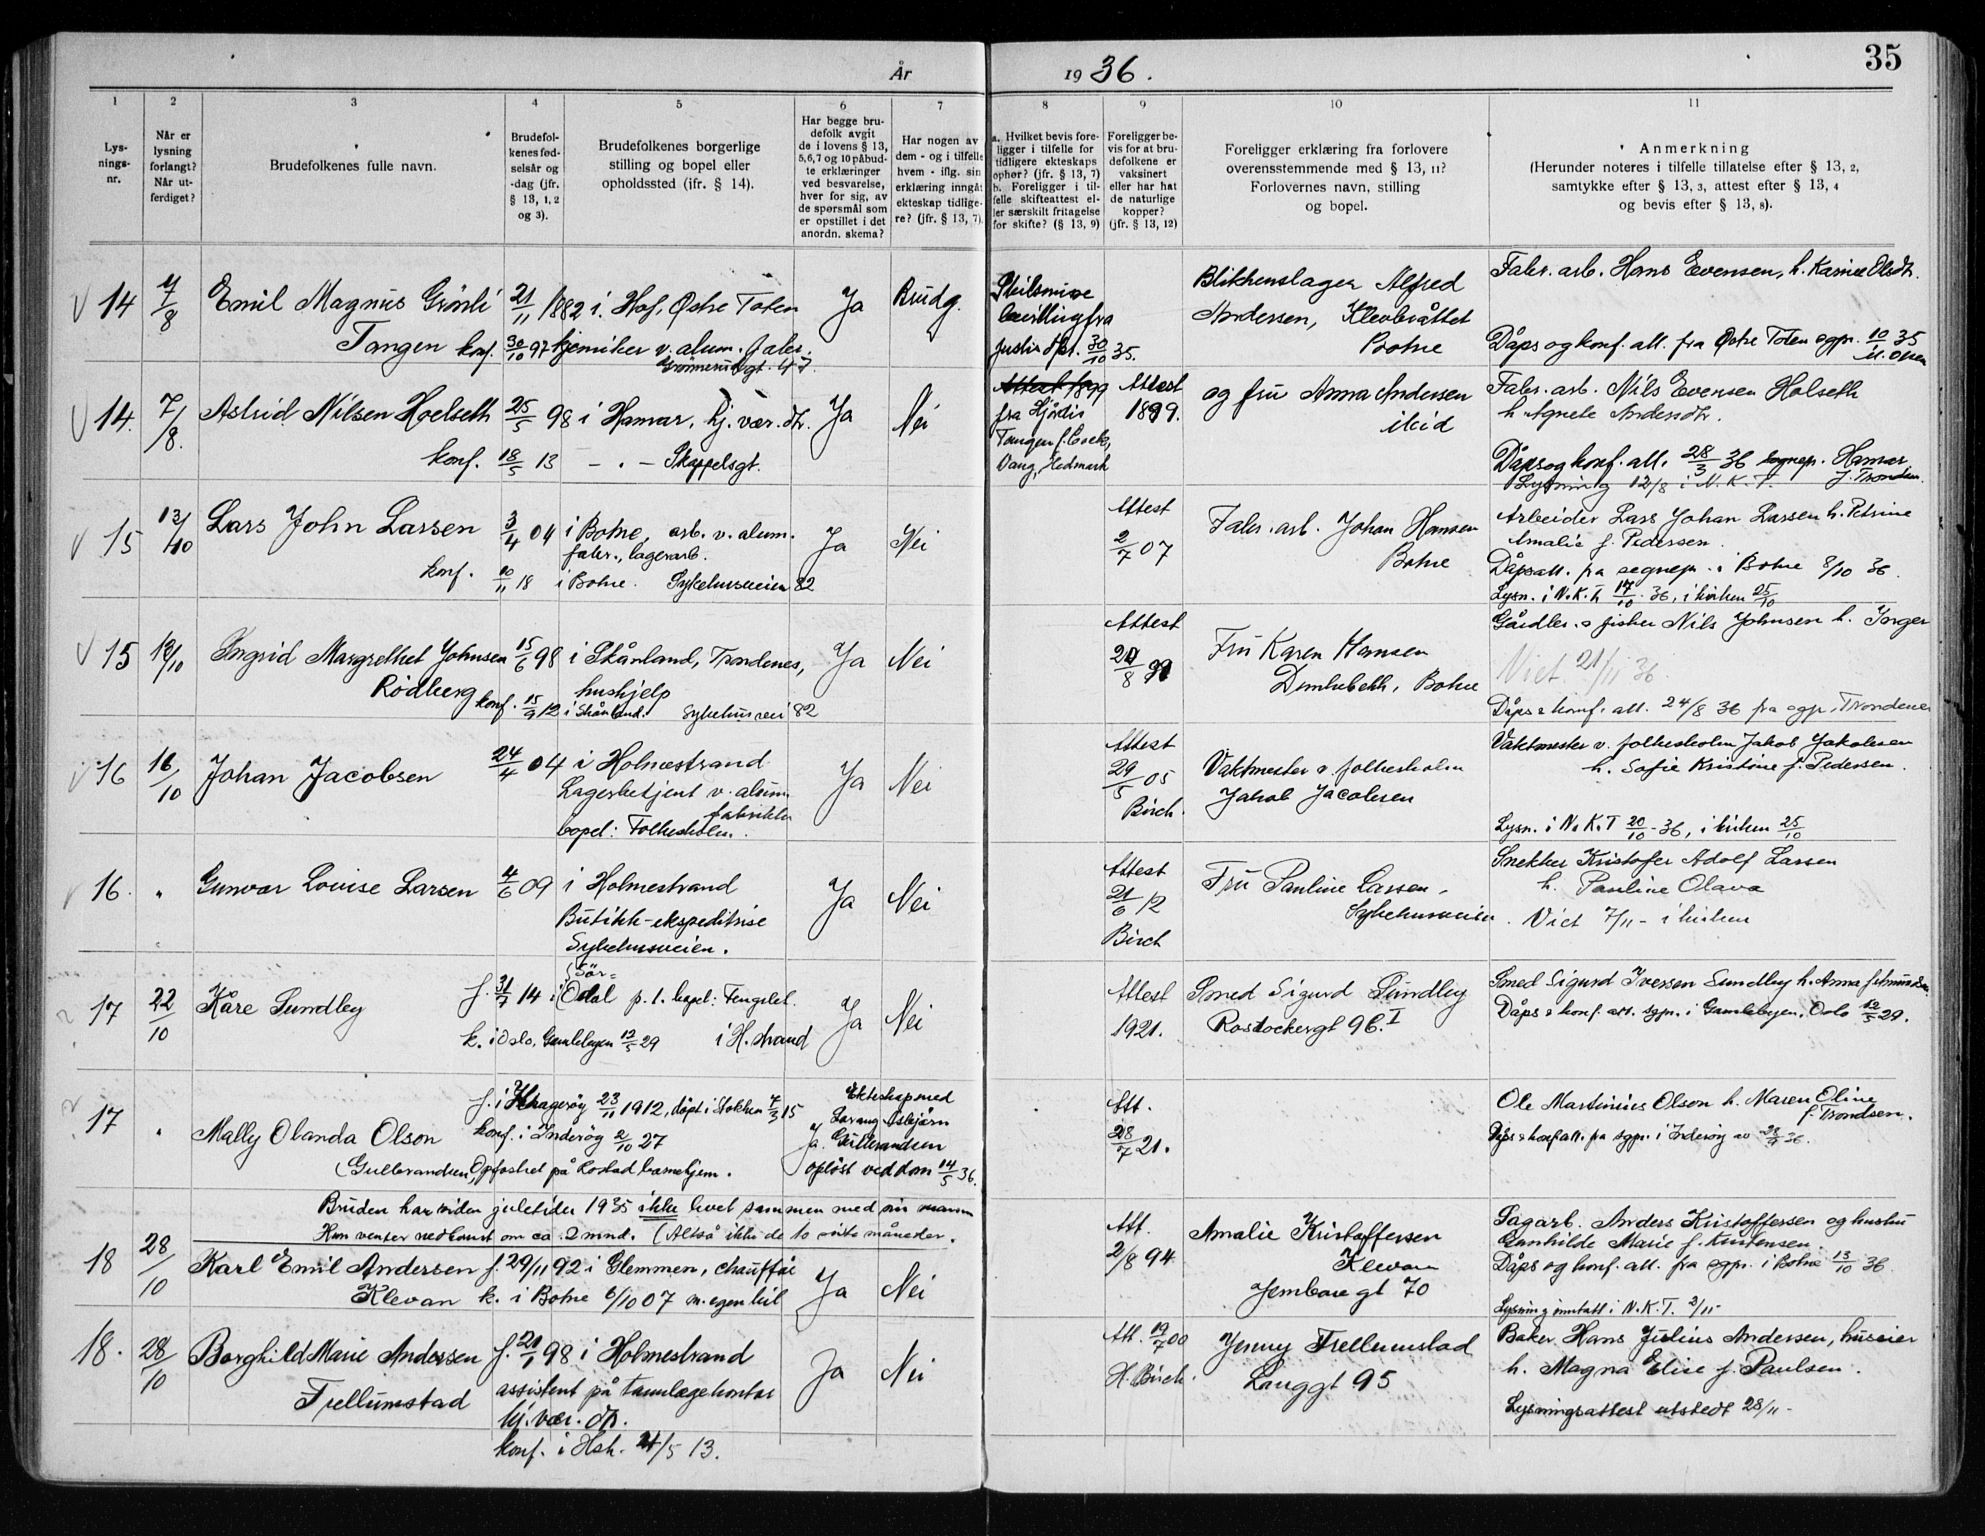 35
År 1936.
1 2 3 4 5 6 7 8 9 10 11
Lys-
nings-
nr.
Når er
lysning
forlangt?
Når ut-
ferdiget?
Brudefolkenes fulle navn.
Brudefol-
kenes fød-
selsår og
-dag (jfr.
§ 13, 1, 2
og 3).
Brudefolkenes borgerlige
stilling og bopel eller
opholdssted (ifr. § 14).
Har begge bru-
defolk avgit
de i lovens § 13,
5,6,7 og 10 påbud-
te erklæringer
ved besvarelse,
hver for sig, av
de spørsmål som
er opstillet i det
anordn. skema?
Har nogen av
dem - og i tilfelle
hvem - iflg. sin
erklæring inngåt
ekteskap tidlige-
re? (jfr. § 13, 7).
a. Hvilket bevis fore-
ligger i tilfelle for
tidligere ekteskaps
ophør? (jfr. § 13, 7)
b. Foreligger i til-
felle skifteattest el-
ler særskilt fritagelse
for skifte? (§ 13, 9)
Foreligger be-
vis for at bru-
defolkene er
vaksinert
eller har hat
de naturlige
kopper?
(jfr. § 13, 12)
Foreligger erklæring fra forlovere
overensstemmende med § 13, 11?
Forlovernes navn, stilling
og bopel.
Anmerkning
(Herunder noteres i tilfelle tillatelse efter § 13, 2,
samtykke efter § 13, 3, attest efter § 13, 4
og bevis efter § 13, 8).
14 7/8 Emil Magnus Grönli
Tangen konf. 30/10 97
21/11 1882 i Hof, Östre Toten
kjemiker v. alum. fabr.
Grønnerudgt. 47
Ja
Brudg.
Skilsmisse
bevilling fra
justis dpt. 30/10 35.
Blikkenslager Alfred
Andersen, Klevbråttet
Botne
Fabr. arb. Hans Evensen, h. Karine Olsdtr.
Dåps og konf. att. fra Østre Toten sgpr. 10/11 35
14. 7/8. Astrid Nilsen Hoelseth
konf. 18/5 13
25/5 98 i Hamar, hj. vær. dtr.
— " — Skappelsgt.
Ja
Nei
fra Hjördis
Tangen f. Evels,
Vang, Hedmark
Attest
1899.
og fru Anna Andersen
ibid
Fabr. arb. Nils Evensen Holseth
h. Agnete Andersdtr.
Dåps og konf. att. 28/3 36 sognepr. Hamar
Lysning 12/8 i N. K. T.
15 13/10 Lars John Larsen
konf. 10/11 18 i Botne.
3/4 04 i Botne, arb. v. alum.
fabr., lagerarb.
Sykehusveien 82
Ja
Nei
Attest
2/7 07
Fabr. arb. Johan Hansen
Botne
Arbeider Lars Johan Larsen h. Petrine
Amalie f. Pedersen.
Dåpsatt. fra sognepr. i Botne 8/10 36.
Lysn. i N. K. T. 17/10 36, i kirken 25/10
15 13/10 Ingrid Margrethe Johnsen
Rödberg konf. 15/9 12 i Skånland.
15/6 98 i Skånland, Trondenes,
hushjelp
Sykehusvei 82
Ja
Nei
Attest
20/8 99
Fru Karen Hansen
Dunkebekk, Botne
Gårdbr. & fisker Nils Johnsen h. Inger
Viet 21/11 36.
Dåps & konf. att. 24/8 36 fra sgpr. Trondenes
16 16/10 Johan Jacobsen
24/4 04 i Holmestrand
Lagerbetjent v. alum.
fabrikken
bopel: Folkeskolen.
Ja
Nei
Attest
29/5 05
Birch.
Vaktmester v. folkeskolen
Jakob Jacobsen
Vaktmester v. folkeskolen Jakob Jakobsen
h. Sofie Kristine f. Pedersen.
Lysn. i N. K. T 20/10 - 36, i kirken 25/10
16. " Gunvor Louise Larsen
4/6 09 i Holmestrand
Butikk-ekspeditrise
Sykehusveien.
Ja
Nei
Attest
21/6 12
Birch
Fru Pauline Larsen.
Sykehusveien.
Snekker Kristofer Adolf Larsen
h. Pauline Olava
Viet 7/11 - i kirken
17 22/10 Kåre Sundley
f. 31/7 14 i Sör-
Odal p. t. bopel: Fengslet
k. i Oslo, Gamlebyen 12/5 29 i H. strand
Ja
Nei
Attest
1921.
Smed Sigurd Sundby
Rostockergt 96. I
Smed Sigurd Iversen Sundby h. Anna f.
Dåps & konf. att. sgpr. i Gamlebyen, Oslo 12/5 29.
17 " Mally Olanda Olson
(Gulbrandsen) Opfostret på Rostad barnehjem.
f. i Kragerøy 23/11 1912, döpt i Stokken 7/3 15
konf. i Inderöy 2/10 27
Ja.
Ekteskap med
Asbjørn
Gulbrandsen
oplöst ved dom 14/5 36.
Att.
28/7 21.
Ole Martinius Olson h. Maren Oline
f. Trondsen.
Dåps & konf att. fra sgpr. i Inderöy av 28/9 36.
Bruden har siden juletider 1935 ikke levet sammen med sin mann
Hun venter nedkomst om ca. 2 mnd. (Altså ikke de 10 siste måneder.
18 28/10 Karl Emil Andersen
Klevan
f. 29/11 92 i Glemmen, chauffør
k. i Botne 6/10 07 m. egen bil
Ja
Nei
Att.
2/8 94
Amalie Kristoffersen
Klevan
Jernbanegt 70
Sagarb. Anders Kristoffersen og hustru
Gunhilde Marie f. Kristensen.
Dåps og konf. att. fra sgpr. i Botne 13/10 36.
Lysning inntatt i N. K. T. 2/11 -
18. 28/10 Borghild Marie Andersen
Trellumstad
f. 21/1 98 i Holmestrand
assistent på tannlægekontor
hj. vær. dtr.
konf. i Hstr. 21/5 13.
Ja
Nei
Att. 19/7 00
H. Birch.
Jenny Trellumstad
Langgt 95
Baker Hans Julius Andersen, huseier
h. Magna Elise f. Paulsen.
Lysningsattest utstedt 28/11 -